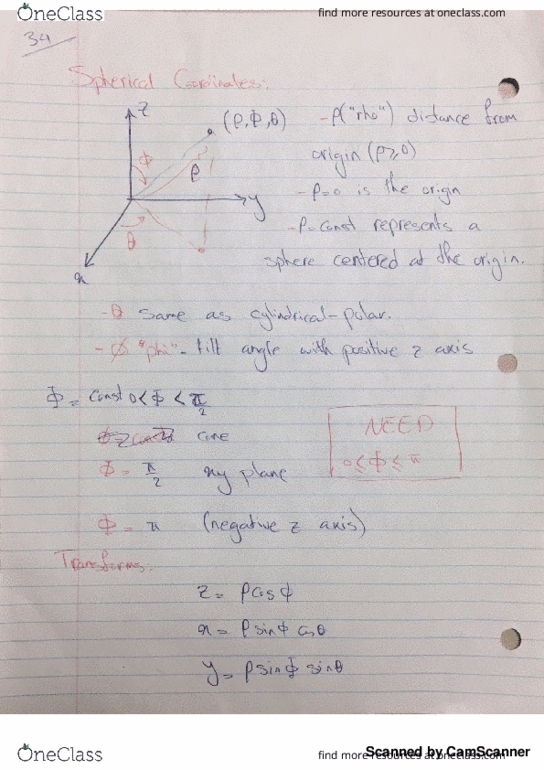 OneClass
find more resources at oneclass.com
34
Spherical Coordinates:
z
(ρ, ϕ, θ)
- ρ ("rho") distance from
ϕ
ρ
origin (ρ≥0)
- ρ=0 is the origin
y
- ρ=const represents a
θ
sphere centered at the origin.
x
- θ same as cylindrical-polar.
- ϕ "phi" - tilt angle with positive z axis
ϕ = const 0<ϕ<π/2
cone
NEED
0≤ϕ≤π
ϕ = π/2 xy plane
ϕ = π (negative z axis)
Transforms:
z = ρcosϕ
x = ρ sinϕ cosθ
y = ρ sinϕ sinθ
OneClass
find more resources at oneclass.com
Scanned by CamScanner